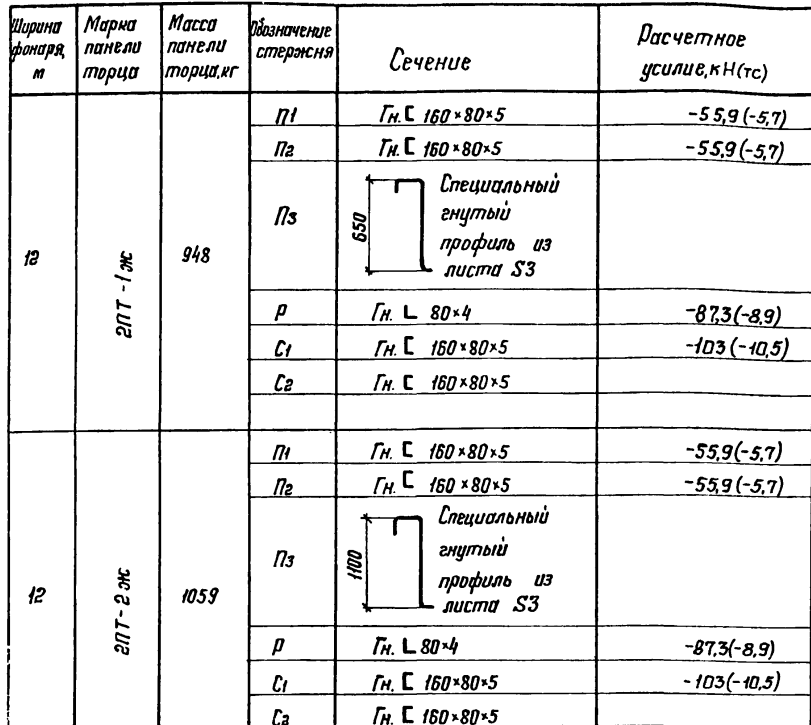 Ширина фонаря, м
Марка панели торца
Масса панели торца,кг
Обозначение стержня
Сечение
Расчетное усилие,кН(тс)
12
2ПТ-1ж
948
П1 Гн. [ 160×80×5 -55,9(-5,7)
П2 Гн. [ 160×80×5 -55,9(-5,7)
П3
650
Специальный
гнутый
профиль из
листа S3
Р Гн. L 80×4 -87,3(-8,9)
С1 Гн. [ 160×80×5 -103(-10,5)
С2 Гн. [ 160×80×5
12
2ПТ-2ж
1059
П1 Гн. [ 160×80×5 -55,9(-5,7)
П2 Гн. [ 160×80×5 -55,9(-5,7)
П3
1100
Специальный
гнутый
профиль из
листа S3
Р Гн. L 80×4 -87,3(-8,9)
С1 Гн. [ 160×80×5 -103(-10,5)
С2 Гн. [ 160×80×5